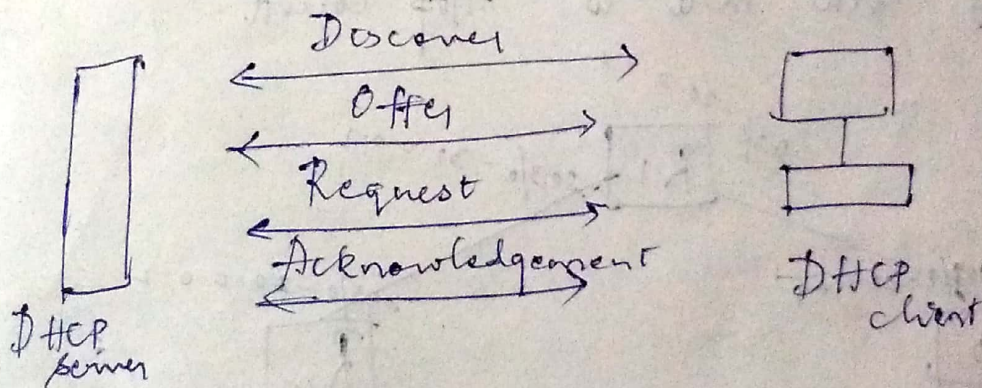 Discover
Offer
Request
Acknowledgement
DHCP
server
DHCP
client